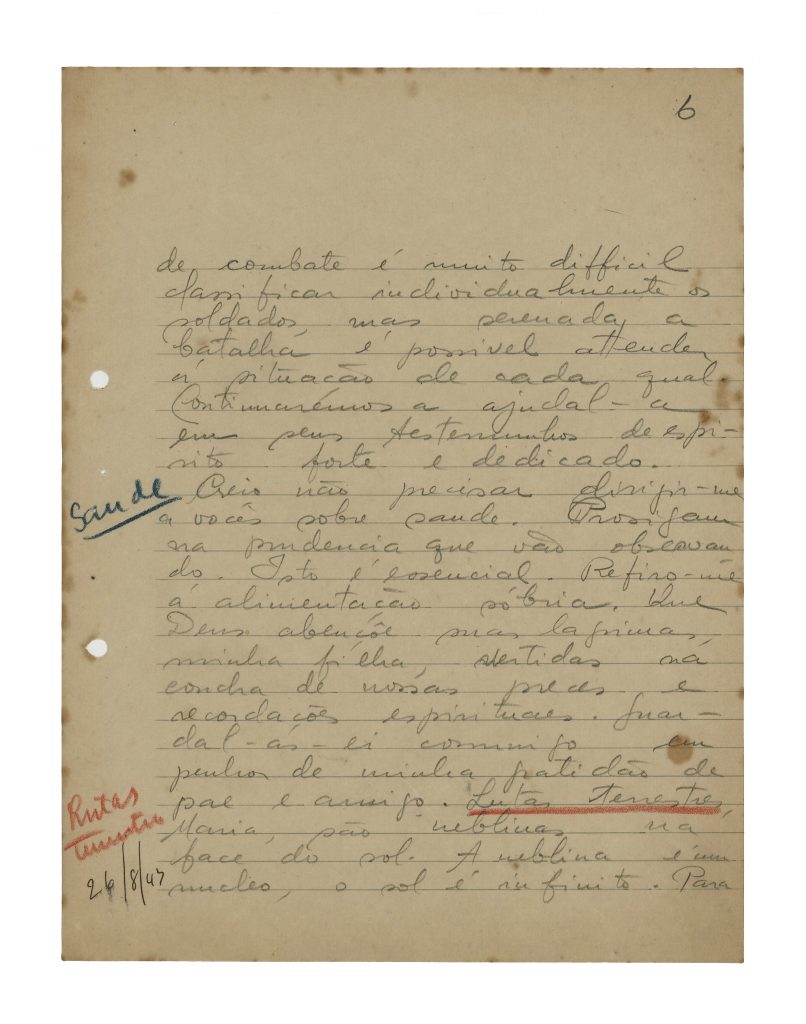 6
de combate é muito difficil
classificar individualmente os
soldados, mas serenada a
batalha é possivel attender
á situação de cada qual.
Continuarémos a ajudal-a
em seus testemunhos de espi-
rito forte e dedicado.
Saude
Creio não precisar dirigir-me
a vocês sobre saude. Prosigam
na prudencia que vão observan
do. Isto é essencial. Refiro-me
á alimentação sóbria. Que
Deus abençõe suas lagrimas,
minha filha, vertidas na
concha de nossas preces e
recordações espirituaes. Guar-
dal-ás-ei commigo em
penhor de minha gratidão de
pae e amigo. Lutas terrestres,
Lutas
Terrestres
Maria, são neblinas na
face do sol. A neblina é um
nucleo, o sol é infinito. Para
26/8/43